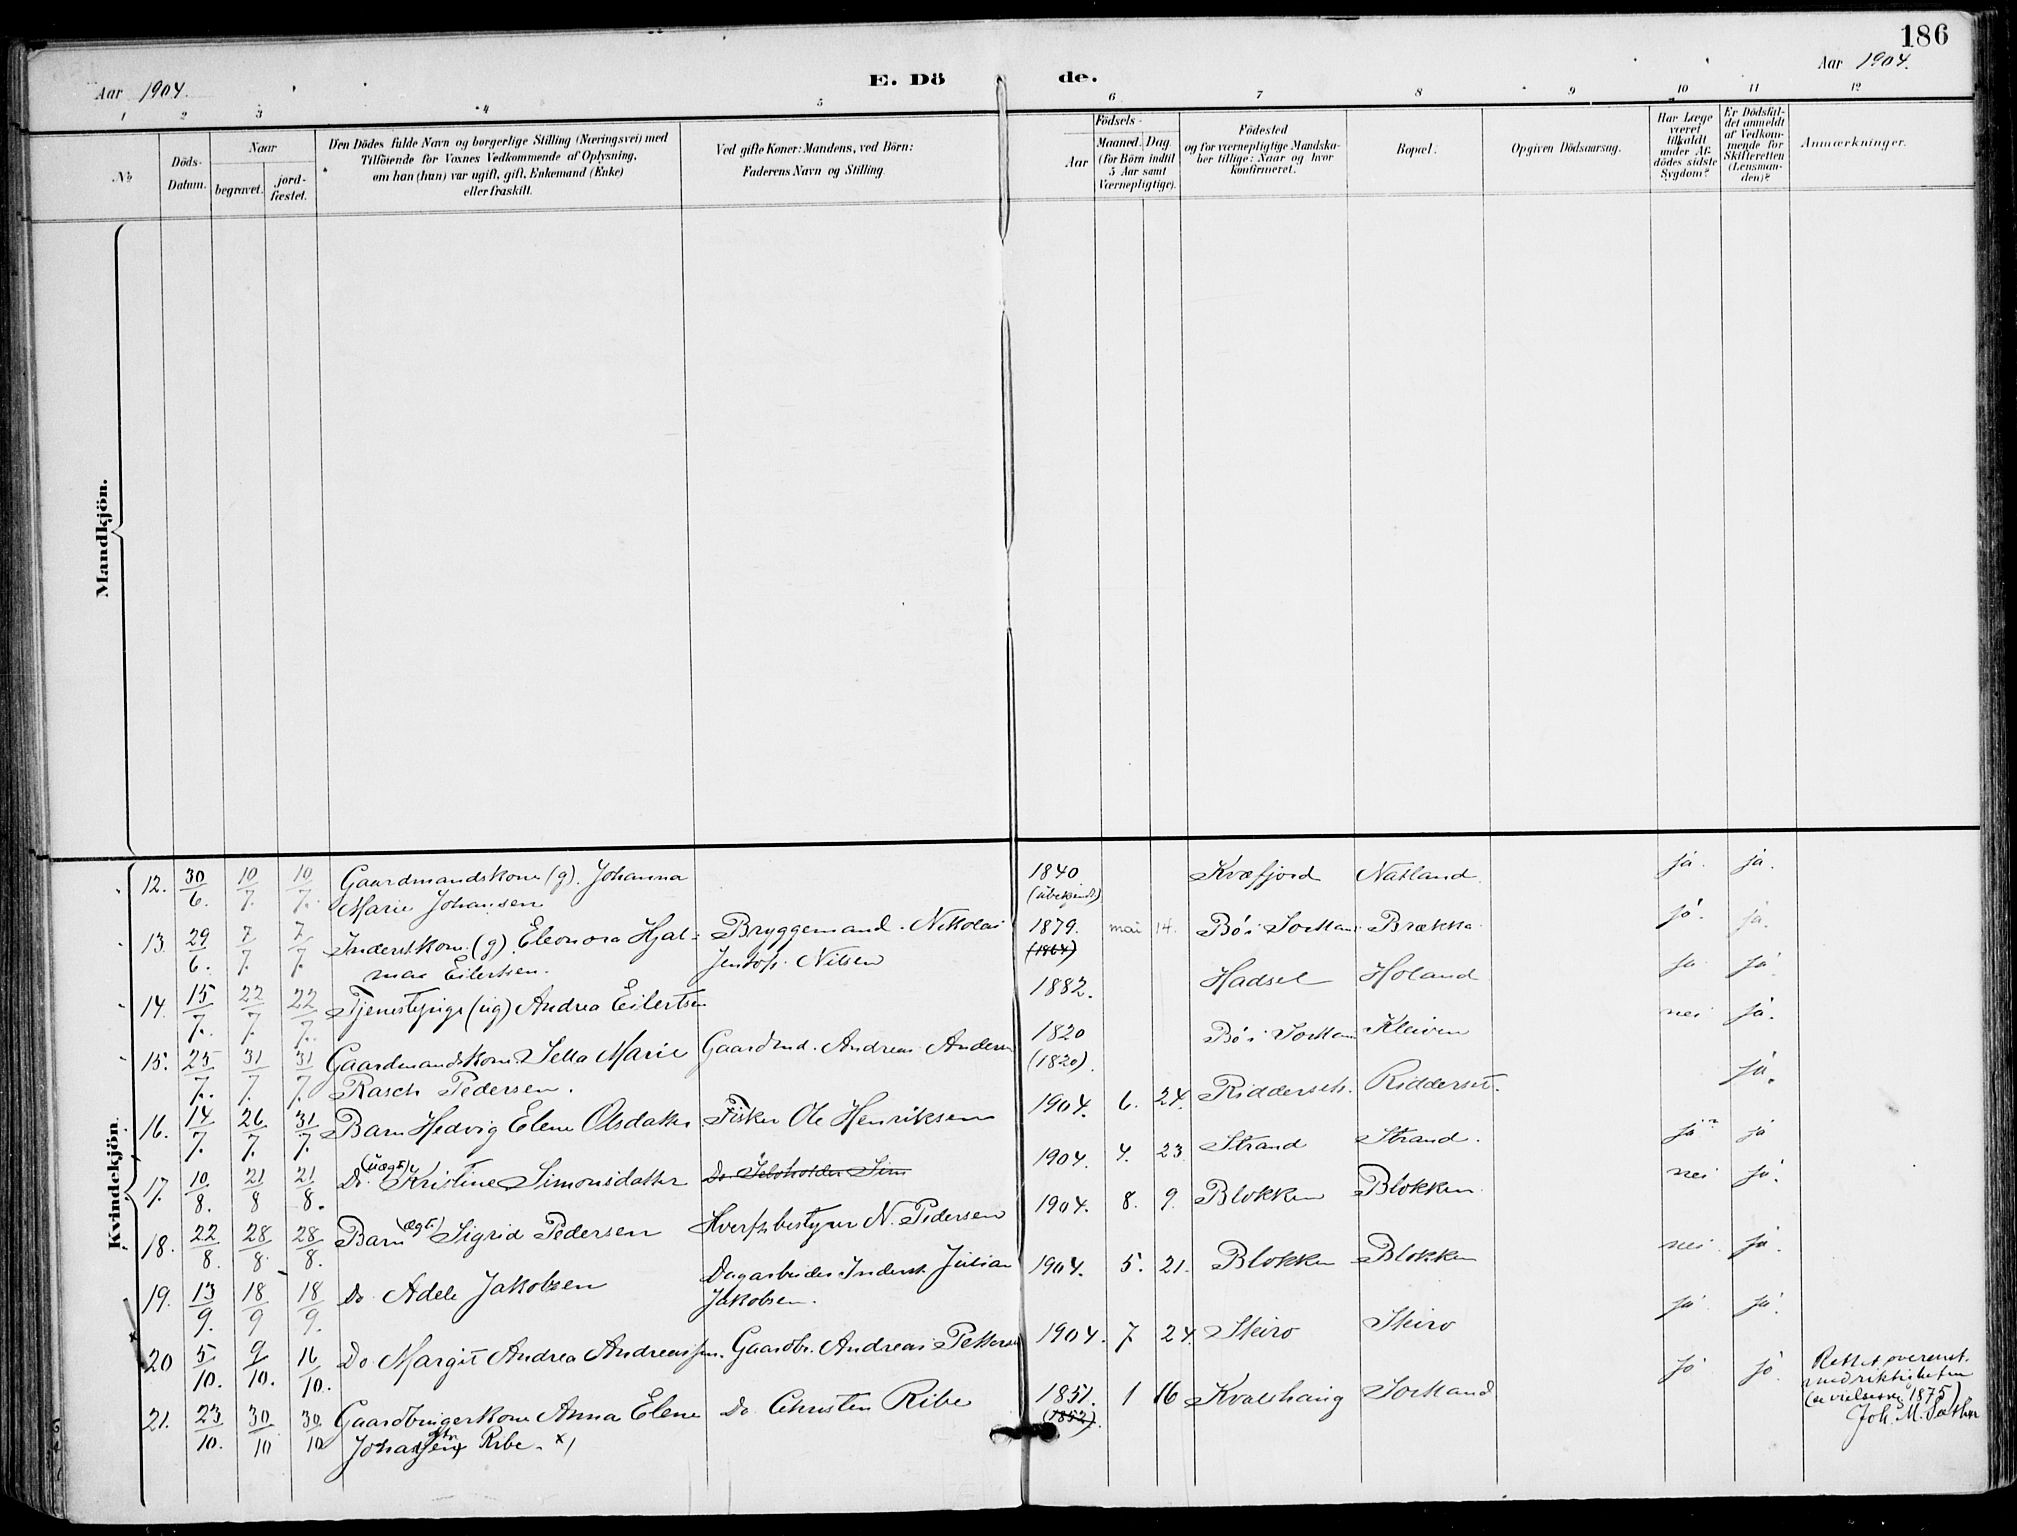 186
Aar 1904.
E. Dö de.
Aar 1904.
1 2 3 4 5 6 7 8 9 10 11 12
No
Döds-
Datum.
Naar
begravet.
jord-
fæstet.
Den Dödes fulde Navn og borgerlige Stilling (Næringsvei) med
Tilföiende for Voxnes Vedkommende af Oplysning,
om han (hun) var ugift, gift, Enkemand (Enke)
eller fraskilt.
Ved gifte Koner: Mandens, ved Börn:
Faderens Navn og Stilling.
Födsels-
Aar
Maaned. Dag.
(for Börn indtil
5 Aar samt
Værnepligtige).
Födested
og for værnepligtige Mandska-
ber tillige: Naar og hvor
konfirmeret.
Bopæl.
Opgiven Dödsaarsag.
Har Læge
været
tilkaldt
under Af-
dödes sidste
Sygdom?
Er Dödsfal-
det anmeldt
af Vedkom-
mende for
Skifteretten
(Lensman-
den)?
Anmærkninger.
Mandkjön.
Kvindekjön.
12. 30/6. 10/7. 10/7. Gaardmandskone (g). Johanna 1840 Kvæfjord Natland. ja. ja.
Marie Johansen (ubekjendt)
13. 29/6. 7/7. 7/7. Inderstkone (g). Eleonora Hjal- Bryggemand. Nikolai 1879. mai 14. Bø i Sortland Brækka ja. ja.
mar Eilertsen. Jentof. Nilsen (1864)
14. 15/7. 22/7. 22/7. Tjenestepige (ug) Andrea Eilertsen 1882. Hadsel Holand ja ja
15. 25/7. 31/7. 31/7. Gaardmandskone Sella Marie Gaardmd. Andreas Andersen 1820 Bø i Sortland Kleiven nei ja.
Rasch Pedersen. (1820).
16. 14/7. 26/7. 31/7. Barn Hedvig Elene Olsdatter Fisker Ole Henriksen 1904. 6. 24. Ridderseth. Ridderset. ja.
17. 10/8. 21/8 21/8. Do. (uægte) Kristine Simonsdatter Do Selvholder Sim 1904. 4. 23. Strand Strand. ja ja
18. 22/8. 28/8. 28/8. Barn (ægte) Sigrid Pedersen N. Pedersen 1904. 8. 9. Blokken Blokken. nei ja.
19. 13/9. 18/9 18/9. Do. Adele Jakobsen Dagarbeider Inderst. Julian 1904. 5. 21. Blokken Blokken nei. ja.
Jakobsen.
20 5/10. 9/10. 16/10. Do Margit Andrea Andreassen. Gaardbr. Andreas Pettersen 1904. 7. 24. Skiro Skiro ja ja.
21. 23/10. 30/10 30/10 Gaardbrugerkone Anna Elene Do. Christen Ribe 1851. 1 16 Kvalshaug Sortland ja ja.
Johansen Ribe. x) (1852).
Rettet overenst.
med riktigheten
(se vielsesreg 1875)
Joh. M.